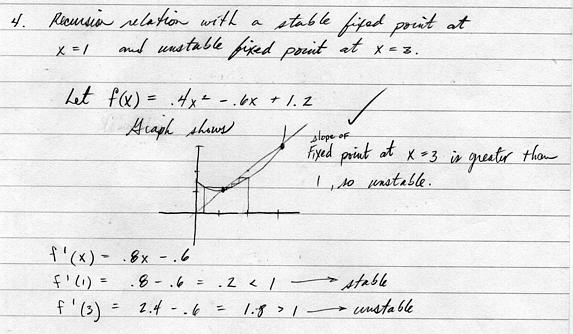 4. Recursion relation with a stable fixed point at
x = 1 and unstable fixed point at x = 3.
Let f(x) = .4x² - .6x + 1.2
Graph shows
slope of
Fixed point at x = 3 is greater than
1, so unstable.
f'(x) = .8x - .6
f'(1) = .8 - .6 = .2 < 1 → stable
f'(3) = 2.4 - .6 = 1.8 > 1 → unstable